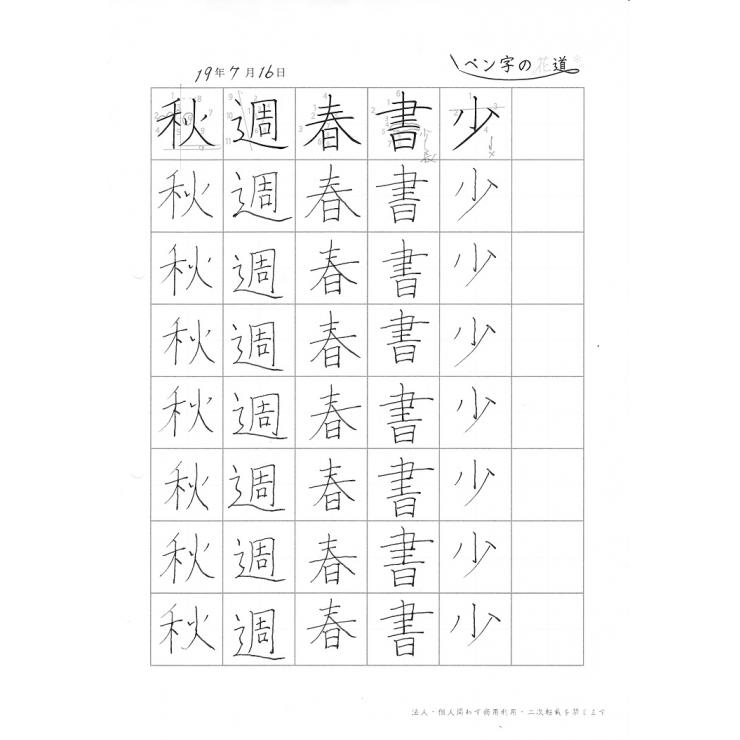 19年7月16日
ペン字の花道
秋 週 春 書 少
秋 週 春 書 少
秋 週 春 書 少
秋 週 春 書 少
秋 週 春 書 少
秋 週 春 書 少
秋 週 春 書 少
秋 週 春 書 少
法人・個人問わず商用利用・二次転載を禁じます